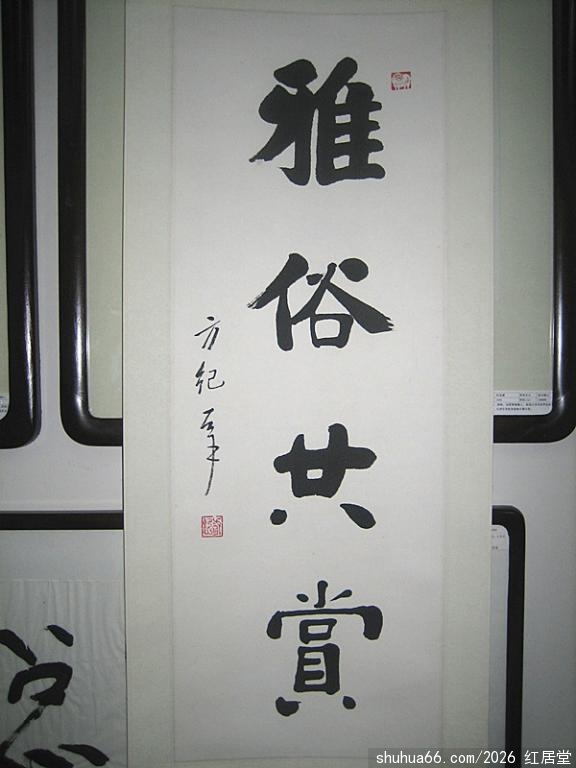 雅俗共賞
方纪左手
shuhua66.com/2026 红居堂